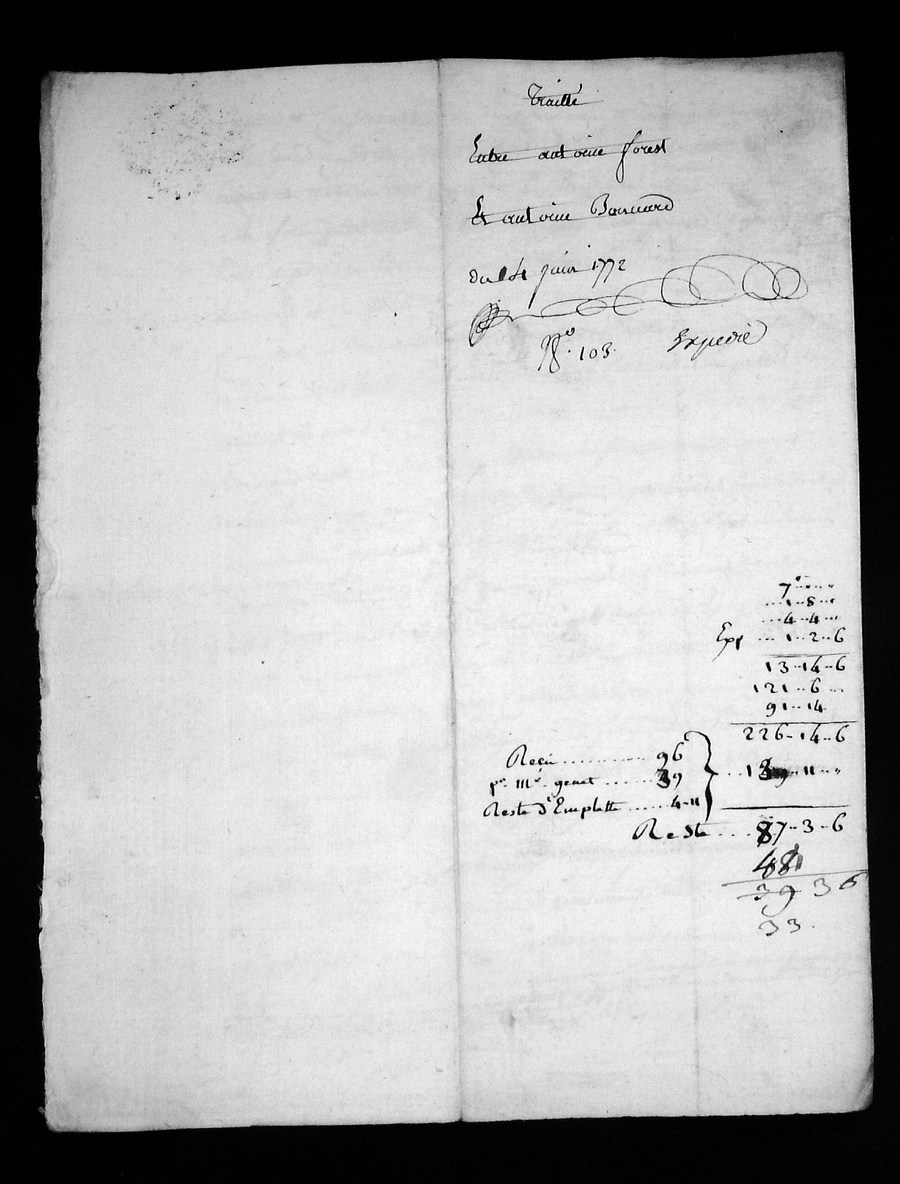 Traitté
Entre antoine forest
Et antoine Bonnard
du 14 juin 1772
N.º 103. Expedié
7 " "
1 8 "
4 4 "
Exp. 1 2 6
13 14 6
121 6 "
91 14
226 14 6
Reçu 96
pr. mr. genet 39 139 11 "
Reste d'Emplette 4 11
Reste 87 3 6
48
39 3 6
33.